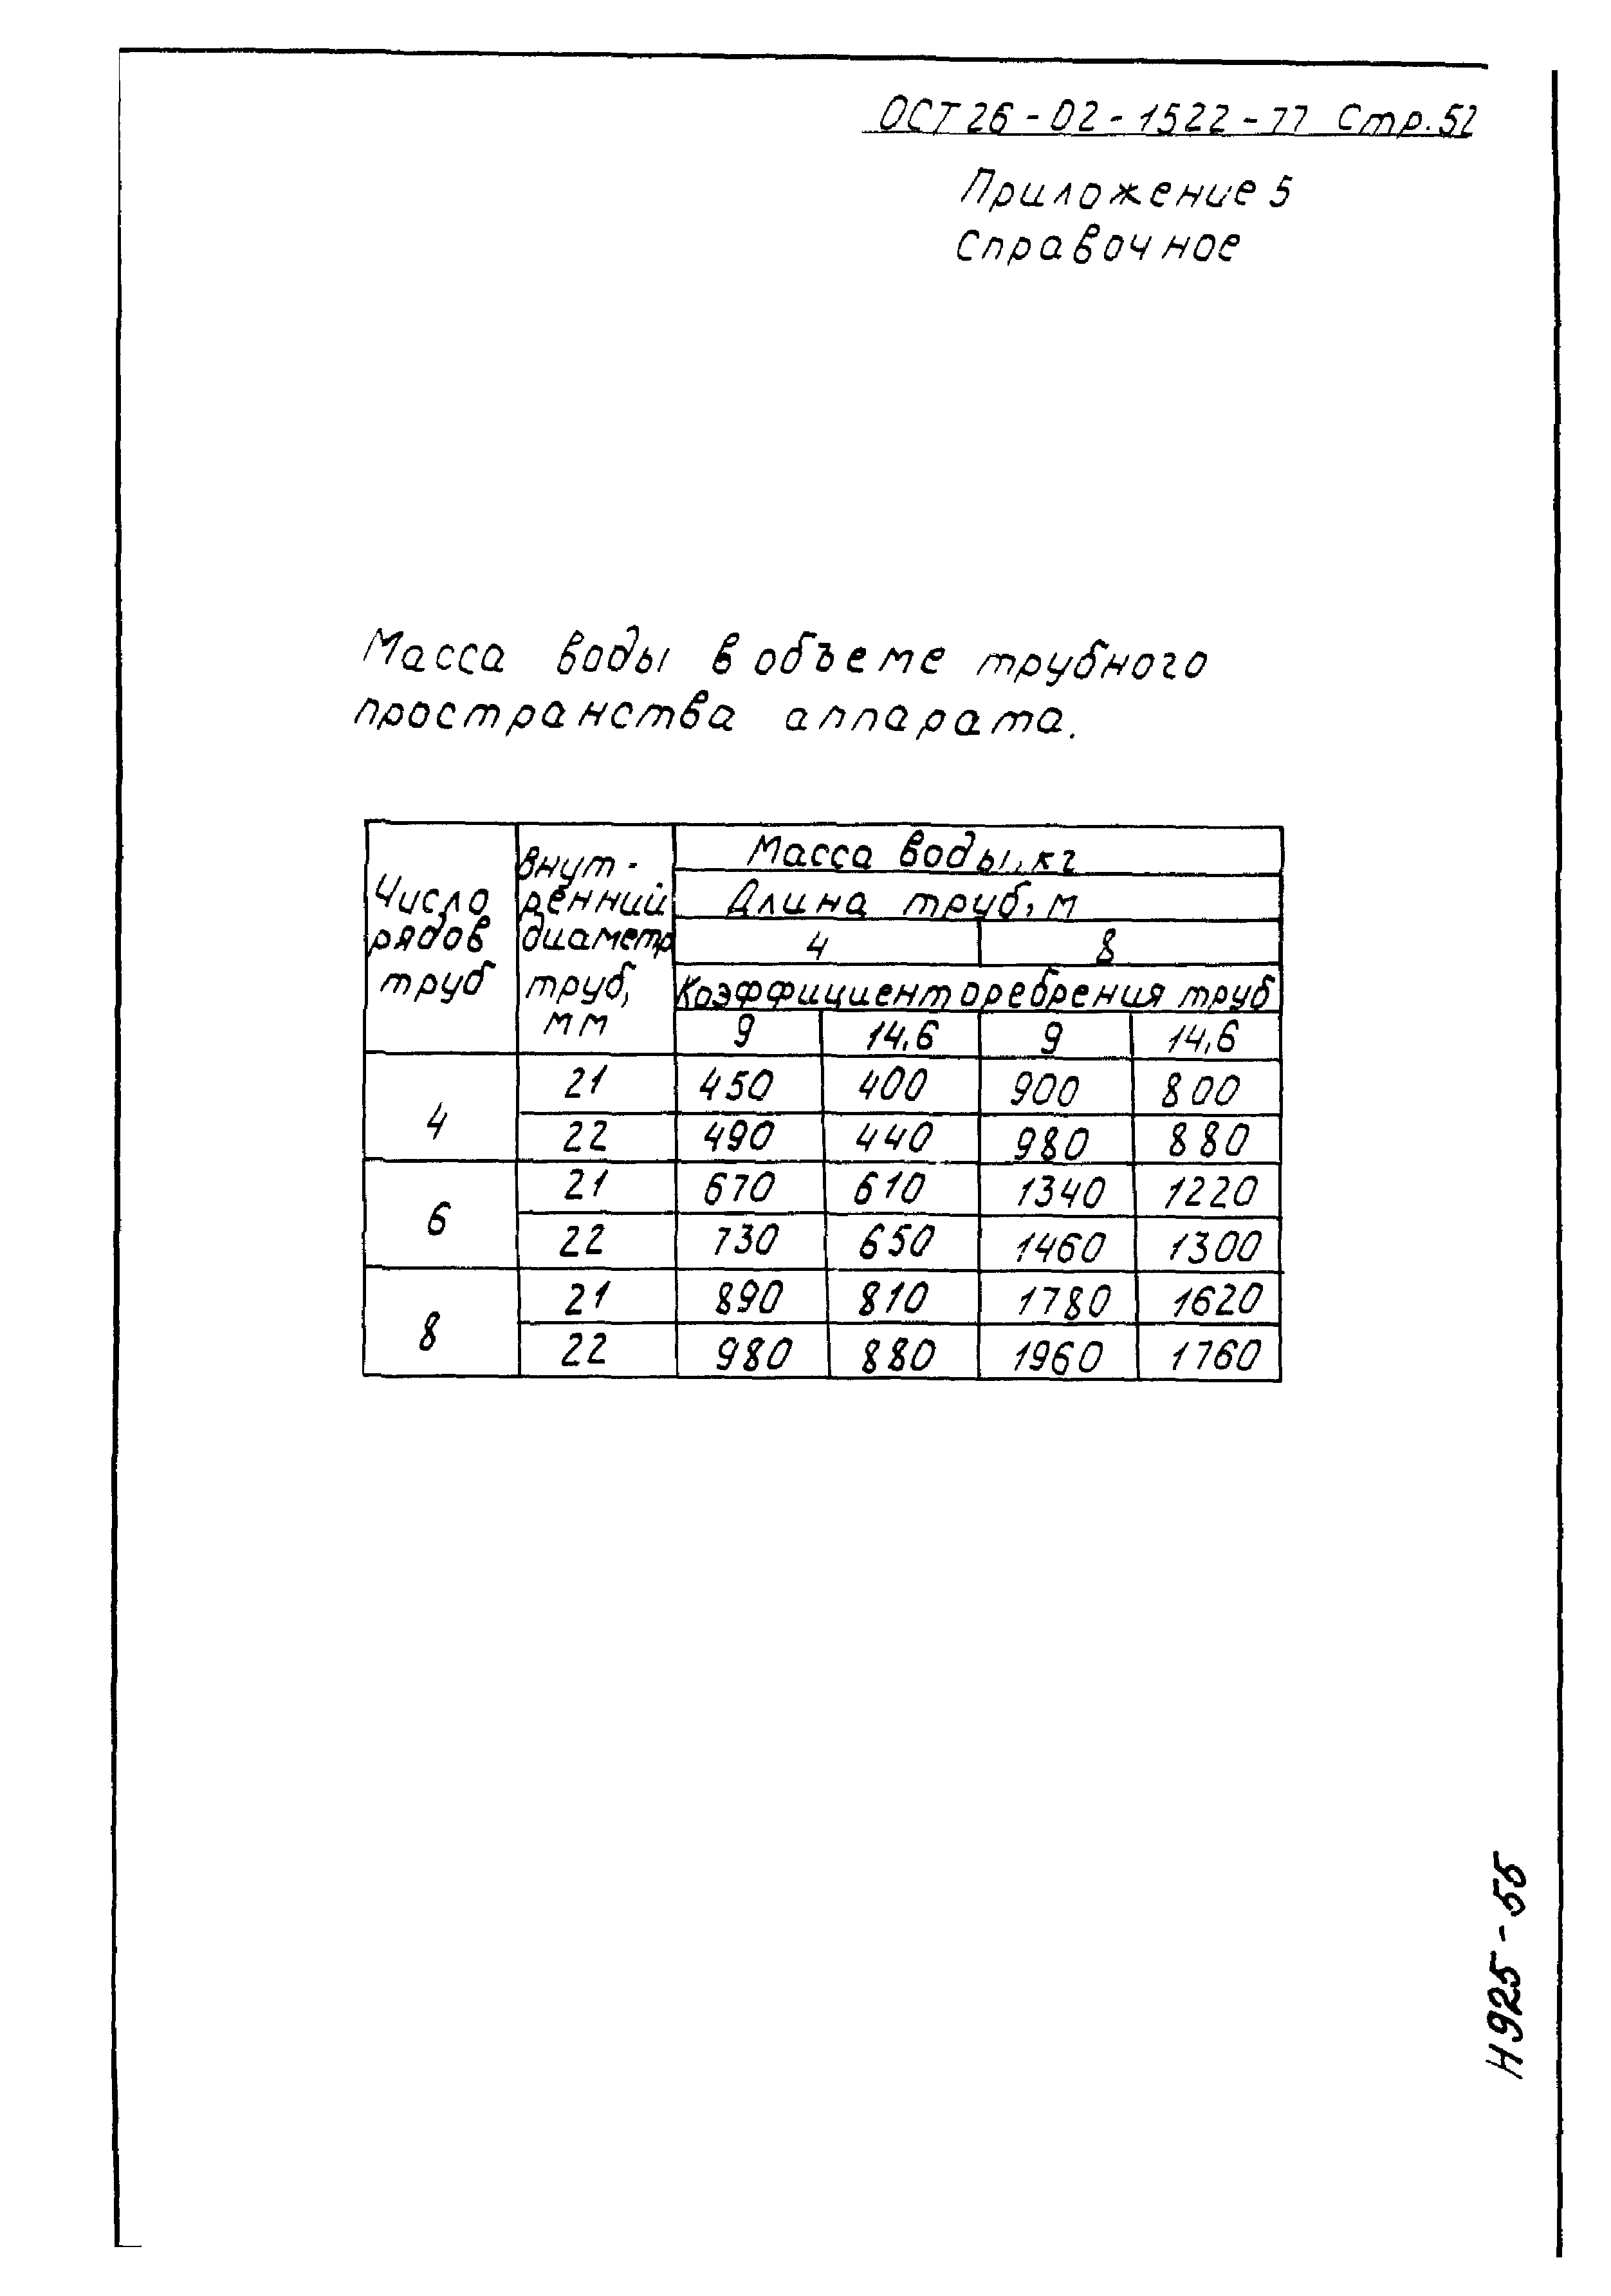 ОСТ 26-02-1522-77 Стр. 52
Приложение 5
Справочное
Масса воды в объеме трубного
пространства аппарата.
Число рядов труб
Внут-
ренний
диаметр
труб,
мм
Масса воды, кг
Длина труб, м
4 8
Коэффициент оребрения труб
9 14,6 9 14,6
4 21 450 400 900 800
22 490 440 980 880
6 21 670 610 1340 1220
22 730 650 1460 1300
8 21 890 810 1780 1620
22 980 880 1960 1760
Н925-55